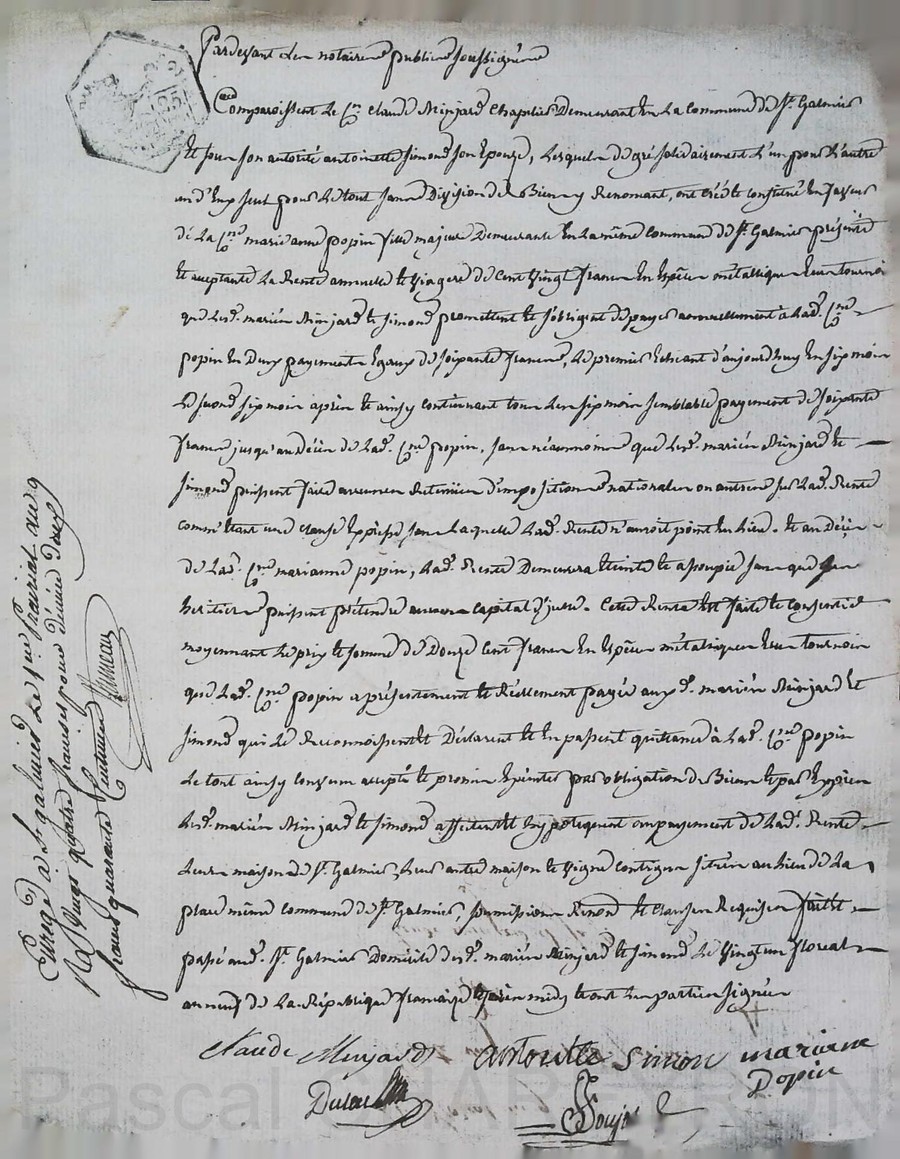 Pardevant les notaires publics soussignés
Comparoissent Le Cen claude Minjard Chapelier Demeurant En La Commune de St. Galmier
Et sous son autorité antoinette Simond son Epouze, Lesquels de gré solidairement L'un pour L'autre
un d'Eux seul pour Le tout sans Division de Biens y Renoncant, ont créé et constitué En faveur
de La Cne marie anne popin fille majeure Demeurante En La même Commune de St. Galmier présente
et acceptante La Rente annuelle et viagere de Cent vingt francs En Espèces métalliques Ecus tournois
que Lesd. mariés Minjard et Simond promettent et s'obligent de payer annuellement à Lad. Cne
popin En Deux payements Egaux de soixante francs, Le premier Echéant d'aujourdhuy En six mois
Le second six mois après et ainsy continuant tous Les six mois semblable payement de soixante
francs jusqu'au Décès de Lad. Cne popin, sans néanmoins que Lesd. mariés Minjard et
Simond puissent faire aucunes Retenues d'impositions nationales ou autres sur Lad. Rente
comm'étant une clause Expresse sans Laquelle Lad. Rente n'auroit point Eu Lieu. et au Décès
de Lad. Cne marianne popin, Lad. Rente Demeurera Eteinte et assoupie sans que ses
heritiers puissent prétendre aucun capital d'jcelle. Cette Rente Est faite et consentie
moyennant Le prix et somme de Douze Cent francs En Espèces métalliques Ecus tournois
que Lad. Cne popin a présentement et Réellement payée auxd. mariés Minjard et
Simond qui Le Reconnoissent et Déclarent et En passent quittance à Lad. Cne popin
Le tout ainsy convenu accepté et promis Exécuter par obligation de Biens et par Exprès
Lesd. mariés Minjard et Simond affectent et hypotequent au payement de Lad. Rente
Leur maison de St. Galmier, Leur autre maison et vigne contigus situés au Lieu de La
plaine même commune de St. Galmier, soumissions Renon. et clauses Requises faite
passé aud. St. Galmier Domicile desd. mariés Minjard et Simond Le vingt un floreal
an neuf de La République française après midy et ont Les parties signées
claude Minjard antoinette Simon mariane
popin
Enregé à St galmier Le prairial an 9
Ra vingt quatre francs pour dernier
francs quarante Centimes
Pascal CHABETRON